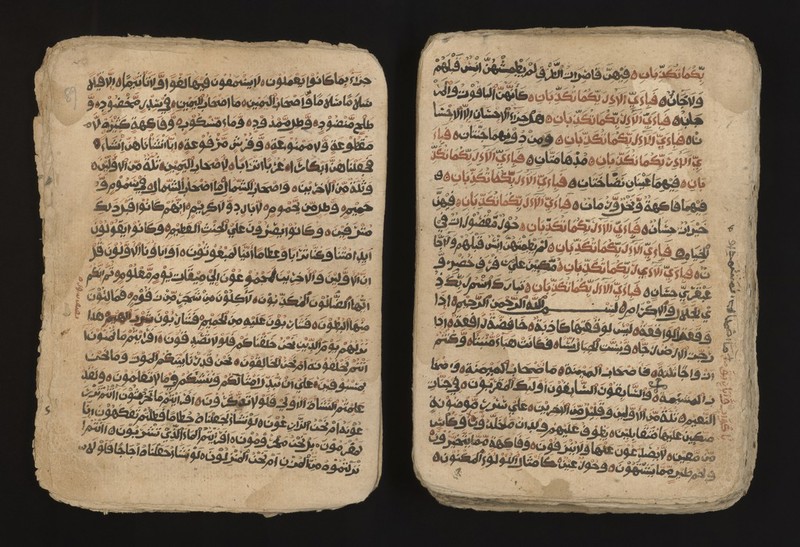 ربكما تكذبان فيهن قاصرات الطرف لم يطمثهن انس قبلهم
ولا جان فباي الاء ربكما تكذبان كانهن الياقوت والمر
جان فباي الاء ربكما تكذبان هل جزاء الاحسان الا الاحسا
ن فباي الاء ربكما تكذبان ومن دونهما جنتان فبا
ي الاء ربكما تكذبان مدهامتان فباي الاء ربكما تكذ
بان فيهما عينان نضاختان فباي الاء ربكما تكذبان
فيهما فاكهة ونخل ورمان فباي الاء ربكما تكذبان فيهن
خيرات حسان فباي الاء ربكما تكذبان حور مقصورات في
الخيام فباي الاء ربكما تكذبان لم يطمثهن انس قبلهم ولا جا
ن فباي الاء ربكما تكذبان متكئين على رفرف خضر و
عبقري حسان فباي الاء ربكما تكذبان تبارك اسم ربك ذ
ي الجلال والاكرام بسم الله الرحمن الرحيم اذا
وقعت الواقعة ليس لوقعتها كاذبة خافضة رافعة اذا
رجت الارض رجا وبست الجبال بسا فكانت هباء منبثا وكنتم
ازواجا ثلاثة فاصحاب الميمنة ما اصحاب الميمنة واصحا
ب المشئمة والسابقون السابقون اولئك المقربون في جنات
النعيم ثلة من الاولين وقليل من الاخرين على سرر موضونة
متكئين عليها متقابلين يطوف عليهم ولدان مخلدون وكاس
من معين لا يصدعون عنها ولا ينزفون وفاكهة مما يتخيرون
ولحم طير مما يشتهون وحور عين كامثال اللؤلؤ المكنون
جزاء بما كانوا يعملون لا يسمعون فيها لغوا ولا تاثيما الا قيلا
سلاما سلاما واصحاب اليمين ما اصحاب اليمين في سدر مخضود و
طلح منضود وظل ممدود وماء مسكوب وفاكهة كثيرة لا
مقطوعة ولا ممنوعة وفرش مرفوعة انا انشاناهن انشاء
فجعلناهن ابكارا عربا اترابا لاصحاب اليمين ثلة من الاولين
وثلة من الاخرين واصحاب الشمال ما اصحاب الشمال في سموم و
حميم وظل من يحموم لا بارد ولا كريم انهم كانوا قبل ذلك
وكانوا يصرون على الحنث العظيم وكانوا يقولون
ايذا متنا وكنا ترابا وعظاما انا لمبعوثون او اباونا الاولون قل
ان الاولين والاخرين لمجموعون الى ميقات يوم معلوم ثم انكم
ايها الضالون المكذبون لاكلون من شجر من زقوم فمالئون
منها البطون فشاربون عليه من الحميم فشاربون شرب الهيم هذا
نزلهم يوم الدين نحن خلقناكم فلولا تصدقون افرايتم ما تمنون
انتم تخلقونه ام نحن الخالقون نحن قدرنا بينكم الموت وما نحن
بمسبوقين على ان نبدل امثالكم وننشئكم في ما لا تعلمون ولقد
علمتم النشاة الاولى فلولا تذكرون افرايتم ما تحرثون انتم تزر
عونه ام نحن الزارعون لو نشاء لجعلناه حطاما فظلتم تفكهون انا
لمغرمون بل نحن محرومون افرايتم الماء الذي تشربون انتم ا
نزلتموه من المزن ام نحن المنزلون لو نشاء جعلناه اجاجا فلولا